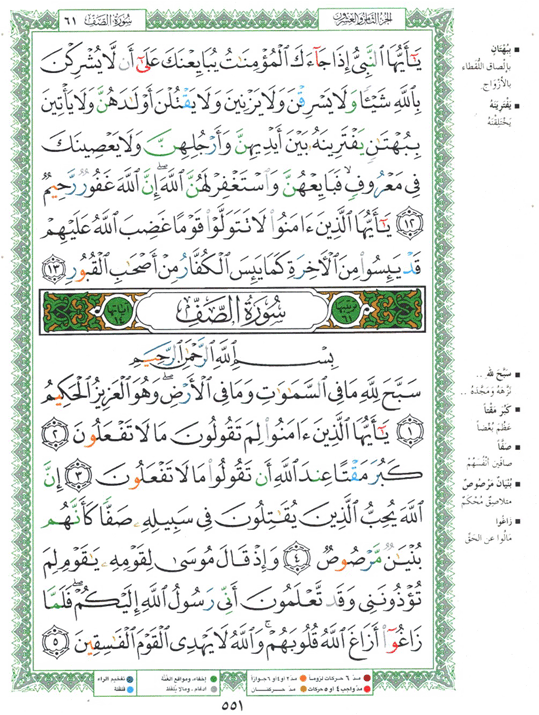 الجزء الثامن والعشرون
سُورَةُ الصَّفِّ ٦١
يَٰٓأَيُّهَا ٱلنَّبِيُّ إِذَا جَآءَكَ ٱلْمُؤْمِنَٰتُ يُبَايِعْنَكَ عَلَىٰٓ أَن لَّا يُشْرِكْنَ
بِٱللَّهِ شَيْـًٔا وَلَا يَسْرِقْنَ وَلَا يَزْنِينَ وَلَا يَقْتُلْنَ أَوْلَٰدَهُنَّ وَلَا يَأْتِينَ
بِبُهْتَٰنٍ يَفْتَرِينَهُۥ بَيْنَ أَيْدِيهِنَّ وَأَرْجُلِهِنَّ وَلَا يَعْصِينَكَ
فِى مَعْرُوفٍ فَبَايِعْهُنَّ وَٱسْتَغْفِرْ لَهُنَّ ٱللَّهَ إِنَّ ٱللَّهَ غَفُورٌ رَّحِيمٌ
١٢ يَٰٓأَيُّهَا ٱلَّذِينَ ءَامَنُوا۟ لَا تَتَوَلَّوْا۟ قَوْمًا غَضِبَ ٱللَّهُ عَلَيْهِمْ
قَدْ يَئِسُوا۟ مِنَ ٱلْءَاخِرَةِ كَمَا يَئِسَ ٱلْكُفَّارُ مِنْ أَصْحَٰبِ ٱلْقُبُورِ ١٣
سُورَةُ الصَّفِّ
بِسْمِ ٱللَّهِ ٱلرَّحْمَٰنِ ٱلرَّحِيمِ
سَبَّحَ لِلَّهِ مَا فِى ٱلسَّمَٰوَٰتِ وَمَا فِى ٱلْأَرْضِ وَهُوَ ٱلْعَزِيزُ ٱلْحَكِيمُ
١ يَٰٓأَيُّهَا ٱلَّذِينَ ءَامَنُوا۟ لِمَ تَقُولُونَ مَا لَا تَفْعَلُونَ ٢
كَبُرَ مَقْتًا عِندَ ٱللَّهِ أَن تَقُولُوا۟ مَا لَا تَفْعَلُونَ ٣ إِنَّ
ٱللَّهَ يُحِبُّ ٱلَّذِينَ يُقَٰتِلُونَ فِى سَبِيلِهِۦ صَفًّا كَأَنَّهُم
بُنْيَٰنٌ مَّرْصُوصٌ ٤ وَإِذْ قَالَ مُوسَىٰ لِقَوْمِهِۦ يَٰقَوْمِ لِمَ
تُؤْذُونَنِى وَقَد تَّعْلَمُونَ أَنِّى رَسُولُ ٱللَّهِ إِلَيْكُمْ فَلَمَّا
زَاغُوٓا۟ أَزَاغَ ٱللَّهُ قُلُوبَهُمْ وَٱللَّهُ لَا يَهْدِى ٱلْقَوْمَ ٱلْفَٰسِقِينَ ٥
بِبُهْتَانٍ
بإلصاق اللُّقطاء
بالأزواج
يَفْتَرِينَهُ
يَخْتَلِقْنَهُ
سَبَّحَ لله ..
نَزَّهَهُ وَمَجَّدَهُ ..
كَبُرَ مَقْتاً
عَظُمَ بُغْضاً
صَفّاً
صافِّين أنْفُسَهُمْ
بُنْيَانٌ مَرْصُوصٌ
متلاصِقٌ مُحْكَمٌ
زَاغُوا
مَالُوا عن الحَقِّ
مدّ ٦ حركات لزوماً
مدّ ٢ أو ٤ أو ٦ جوازاً
إخفاء، ومواقع الغُنَّة
تفخيم الراء
مدّ واجب ٤ أو ٥ حركات
مدّ حركتان
ادغام، وما لا يُلفظ
قلقلة
٥٥١